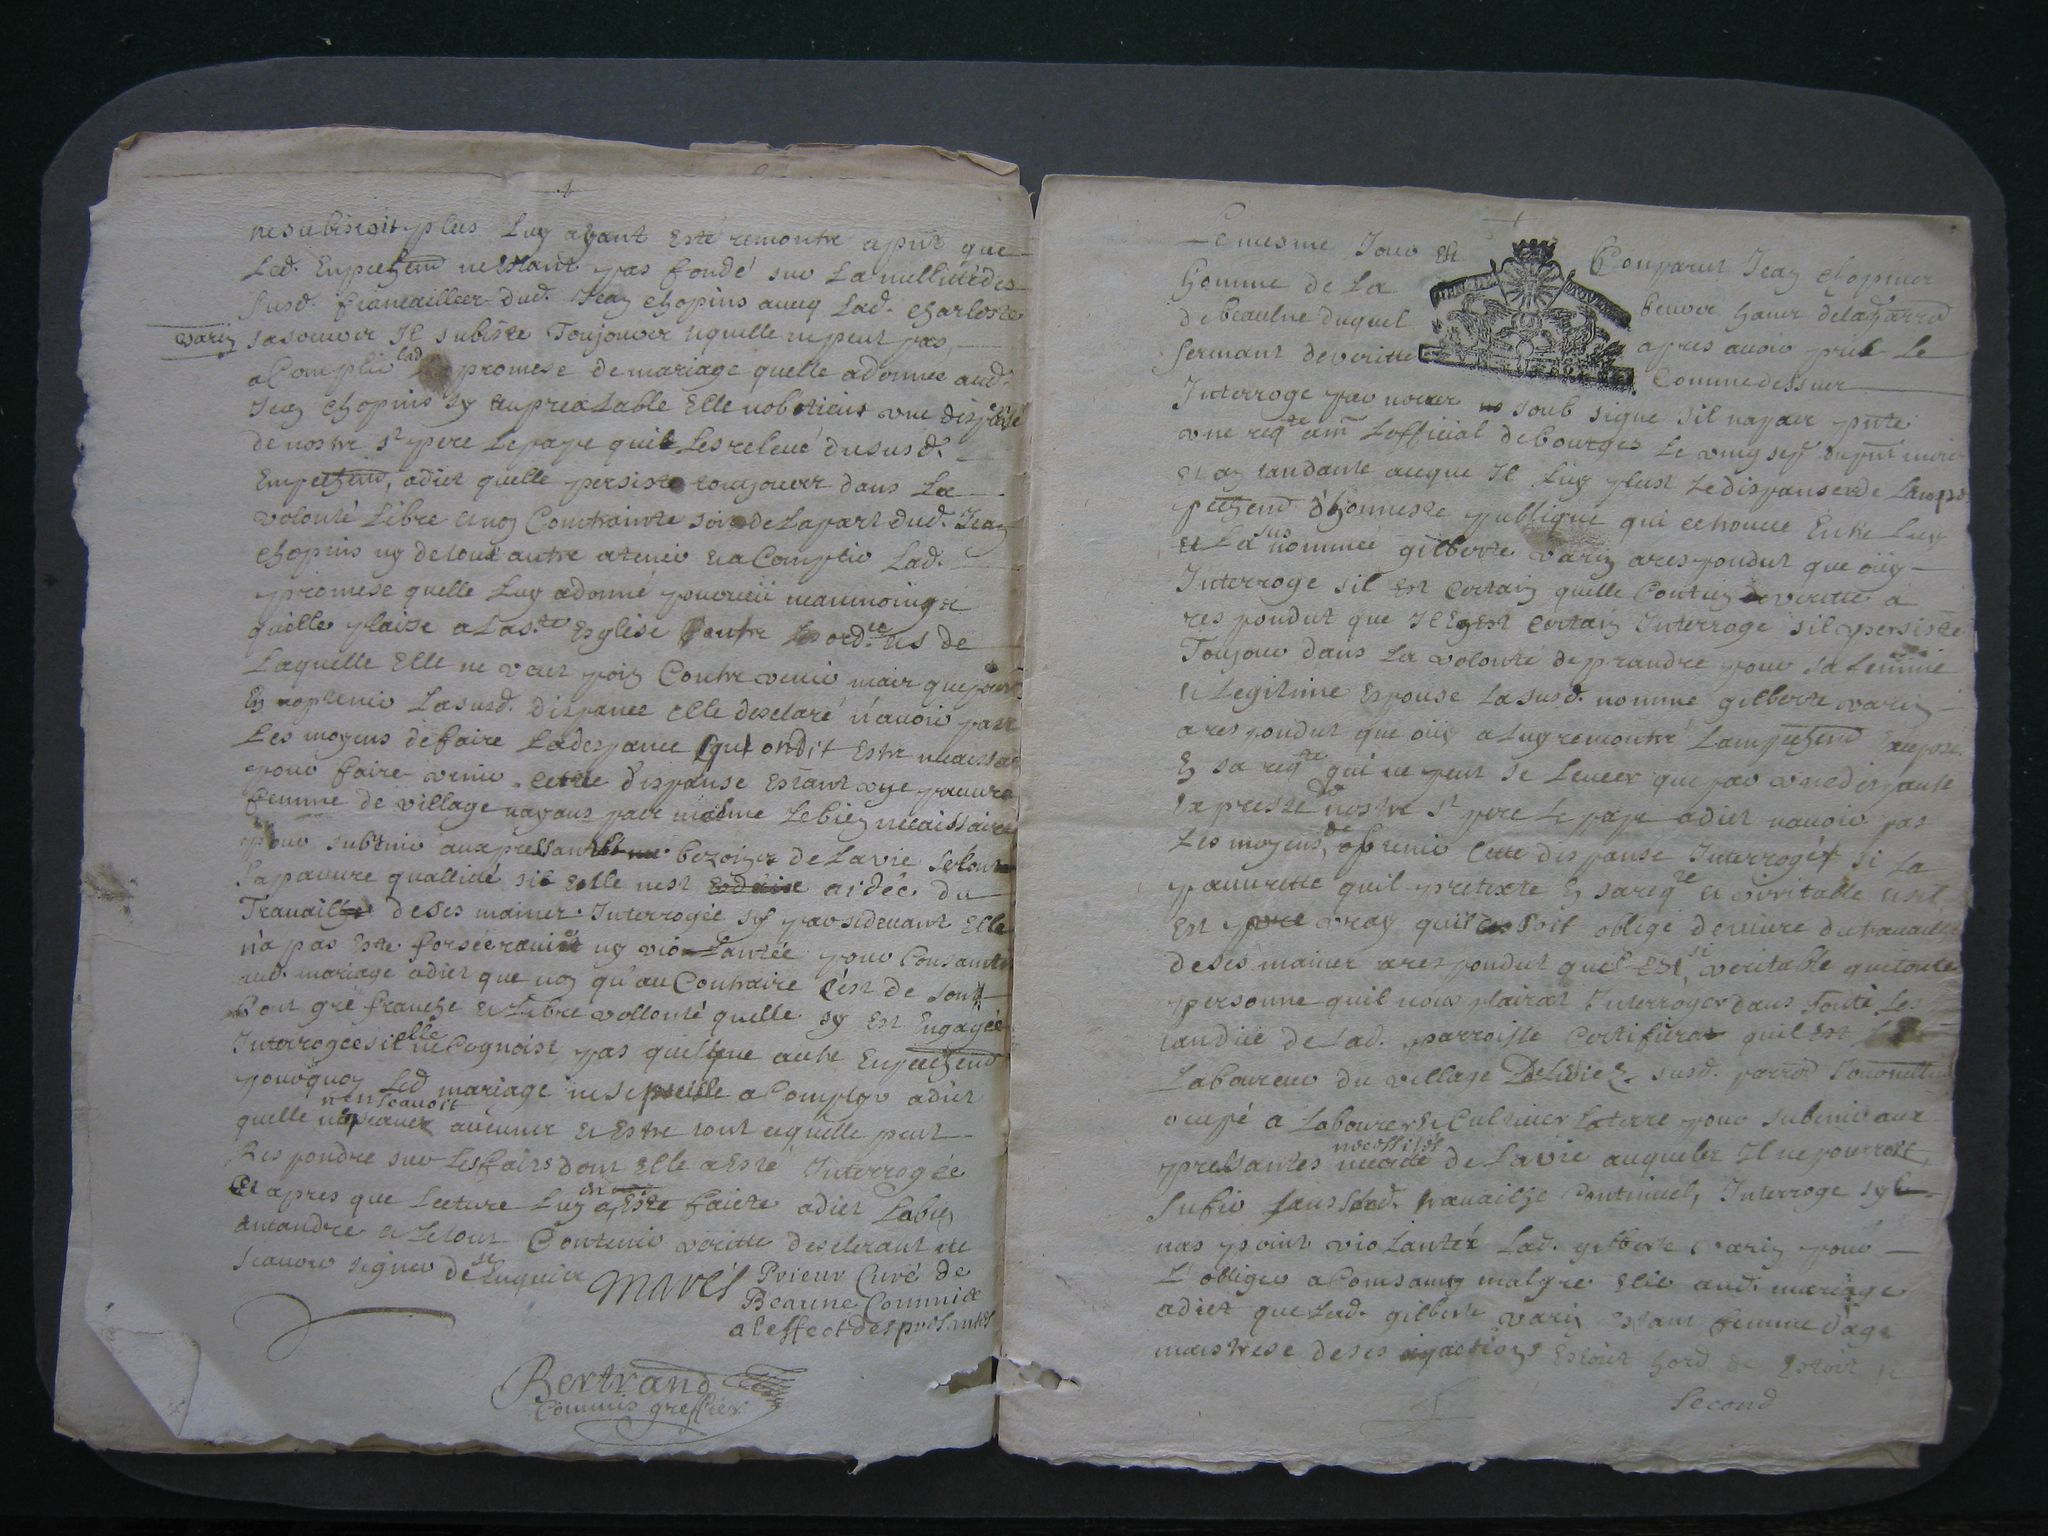 ne subsisoit plus Luy ayant esté remontre apnt que
Led. Enpechemt nestant pas fondé sur La nullité des
susd. fiancailler dud. Jean chopins avecq Lad. charlotte
varin
sa soeuver Il subiste Toujouer requelle ne peut pas
aComplir lad promese de mariage quelle a donnee aud.
Jean chopins sy aupreaLable Elle nobstient une dispense
de nostre st pere Le pape quil Les releué du susd.
Empechemt, adict quelle persiste toujouer dans La
volonté Libre et non Contrainte soit de La part dud. Jean
chopins ny de tout autre atenir et aComplir Lad.
promese quelle Luy adonné pourueü neanmoings
quelle plaise a La ste Esglise Contre les ordres de
Laquelle Elle ne veut poin Contrevenir mair que pour
En noptenir La susd. dispance elle desclaré n'auoir pas
Les moyens de faire Ladespance qui ondit Estre necessaire
pour faire venir cette dispanse Estant une pauure
femme de village nayans pas mesme Le bien necaissaire
pour subvenir aux pressant bezoings de La vie selon
sa pauure quallité si Elle nest aidée du
Travaille deses mainer. Interrogée sy par sidevant Elle
n'a pas Este forsée ravie ny violantée pour Consantir
aud. mariage adict que non qu'au Contraire C'est de son
bon gré franche et Libre vollonté quelle sy Est Engagée
Interrogee si elle ne Cognoist pas quelque autre Enpechemt
pourquoy Led mariage ne se puisse aComplyr adict
quelle n'en scavoit aucuner et Estre tout ce quelle peut
Respondre sur Les faits dont Elle a Esté Interrogée
Et apres que Lecture Luy en a Esté faicte adict La bien
antandre et Le tout Contenir veritté desclerant ne
scauoir signer de ce Enquise
Marés Prieur Curé de
Beaune Commis
a leffect des presantes
Bertrand
Commis greffier
Le mesme Jour Est Comparut Jean chopines
homme de La beuver haner de lad parroisse
de beaulne duquel apres auoir pris Le
sermant de veritte Comme dessuer
Interroge par nouer soub signe sil napair pnte
vne reqte a mr Lofficial de bourges Le vingt sept du pnt moier
et an tandante aceque Il Luy plust Le dispanser de Lampe
pechemt d'honneste publique qui ce trouue Entre Luy
et La sus nommée gilberte varin a respondut que oüy
Interroge sil Est Certain quelle Contien veritte a
respondut que Il En Est Certain Interroge sil persiste
Toujour dans La volonté de prandre pour sa femme
et Legitime Espouse La susd. nomme gilberte varin
a respondut que oüy a Luy remontré Lampechemt Exposé
En sa reqte qui ne peut se Leuer que par vne dispanse
Expresse de nostre st pere Le pape adict nauoir pas
Les moyens de obtenir Cette dispanse Interrogé si La
pauurette quil pretexte En sa reqte et veritable et sil
Est vray quil soit oblige de viure du trauaille
de ses mainer a respondut quil Est si veritable que toute
personne quil nous plairat Interroger dans toute Les
tandüe de Lad. parroisse Certifirat quil Est
Laboureur du village susd. parroisse
ocupé a Labourer et Cultiuer La terre pour subenir aux
pressantes necessites de La vie auquelez Il ne pourroit
subir sans Led. trauaille Continuel, Interroge sy
nas point violanter Lad. gilberte varin pour
L'obliger a Comsantir malgre Elle aud. mariage
adict que Lad. gilberte varin Estant femme d'age
maistrese de ses actions Estoit hord de
second